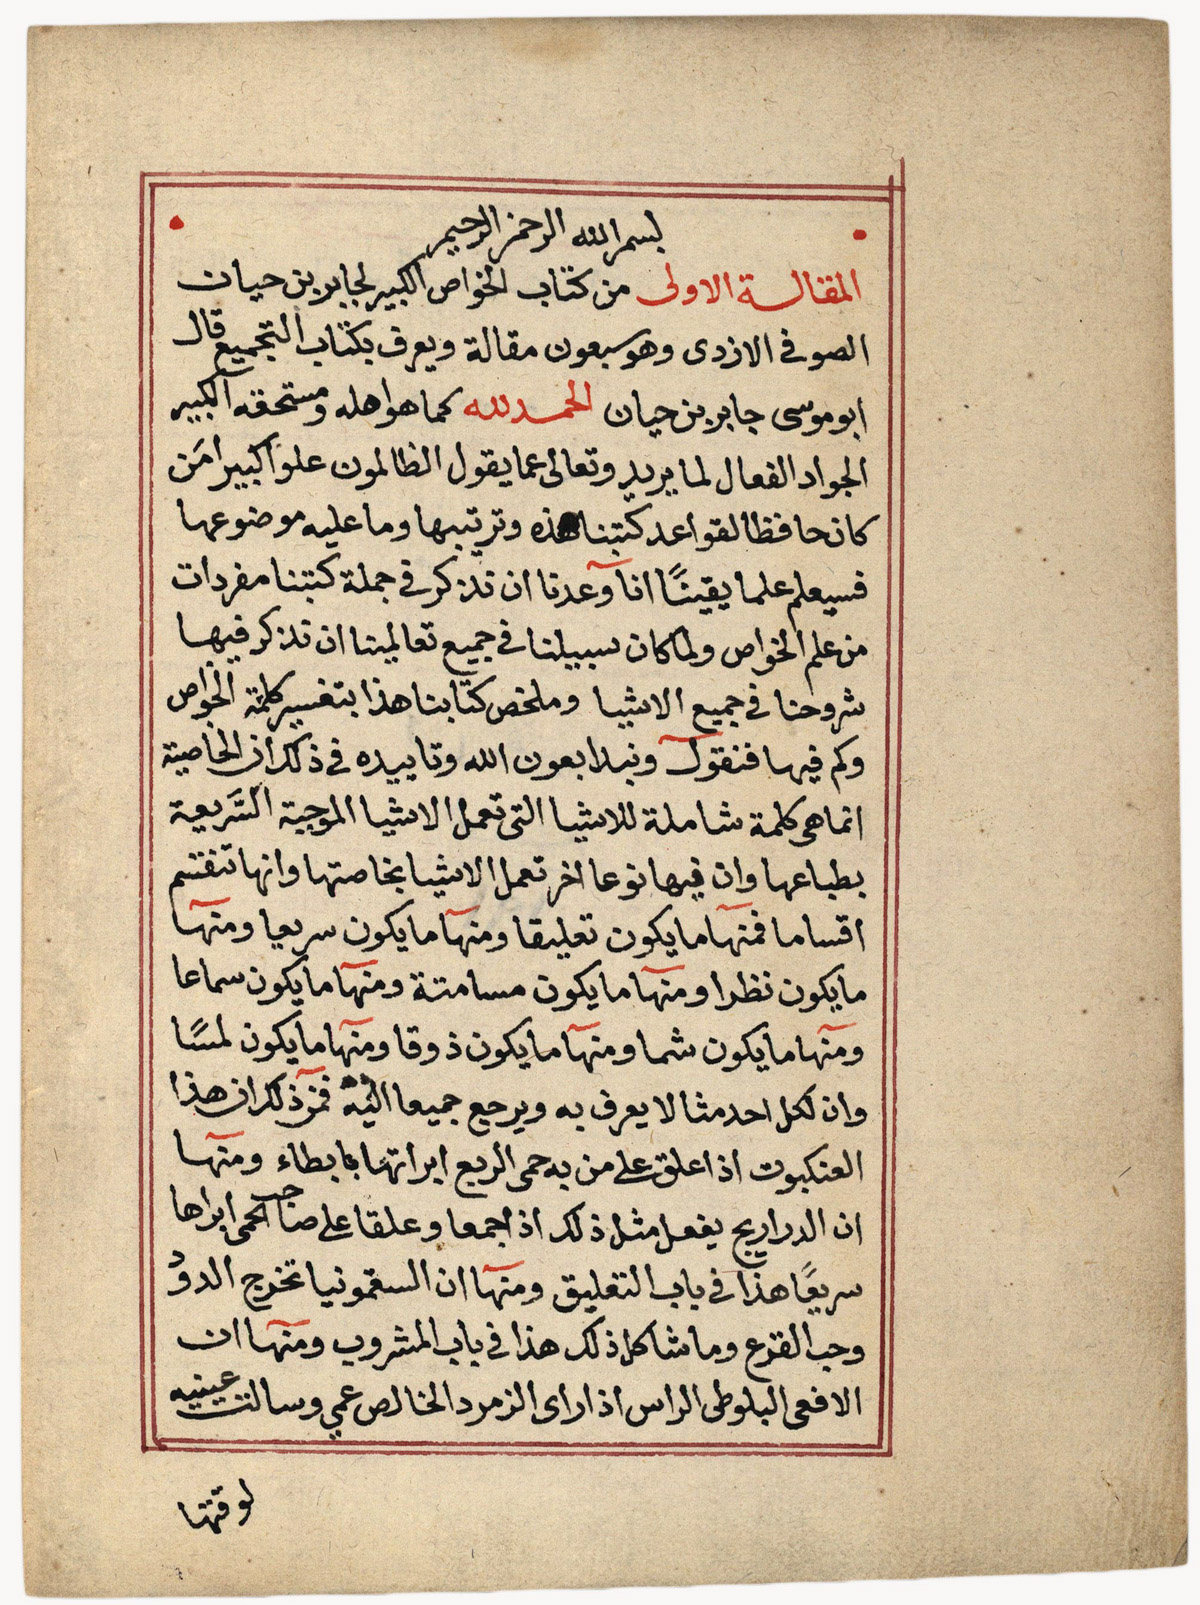 بسم الله الرحمن الرحيم
المقالة الاولى من كتاب الخواص الكبير لجابر بن حيان
الصوفي الازدى وهو سبعون مقالة ويعرف بكتاب التجميع قال
ابو موسى جابر بن حيان الحمد لله كما هو اهله ومستحقه الكبير
الجواد الفعال لما يريد وتعالى عما يقول الظالمون علوا كبيرا مَن
كان حافظا لقواعد كتبنا هذه وترتيبها وما عليه موضوعها
فسيعلم علما يقينًا انا وعدنا ان نذكر في جملة كتبنا مفردات
من علم الخواص ولما كان سبيلنا في جميع تعاليمنا ان نذكر فيها
شروحنا في جميع الاشيا وملخص كتابنا هذا بتفسير كلمة الخواص
وكم فيها فنقول ونبدا بعون الله وتاييده في ذلك ان الخاصية
انما هى كلمة شاملة للاشيا التى تعمل الاشيا الموجبة السَّريعة
بطباعها وان فيها نوعا اخر تعمل الاشيا بخاصتها وانها تنقسم
اقساما فمنها ما يكون تعليقا ومنها ما يكون سريعا ومنها
ما يكون نظرا ومنها ما يكون مسامتة ومنها ما يكون سماعا
ومنها ما يكون شما ومنها ما يكون ذوقا ومنها ما يكون لمسًا
وان لكل احد مثالا يعرف به ويرجع جميعا اليه فمن ذلك ان هذا
العنكبوت اذا علق على من به حمى الربع ابراته بابطاء ومنها
ان الدراريج يفعل مثل ذلك اذا جمعا وعلقا على صاحب الحمى ابراها
سريعًا هذا في باب التعليق ومنها ان السقمونيا تخرج الدود
وحب القرع وما شاكل ذلك هذا في باب المشروب ومنها ان
الافعى البلوطى الراس اذا راى الزمرد الخالص عمي وسالت عينيه
لوقتها